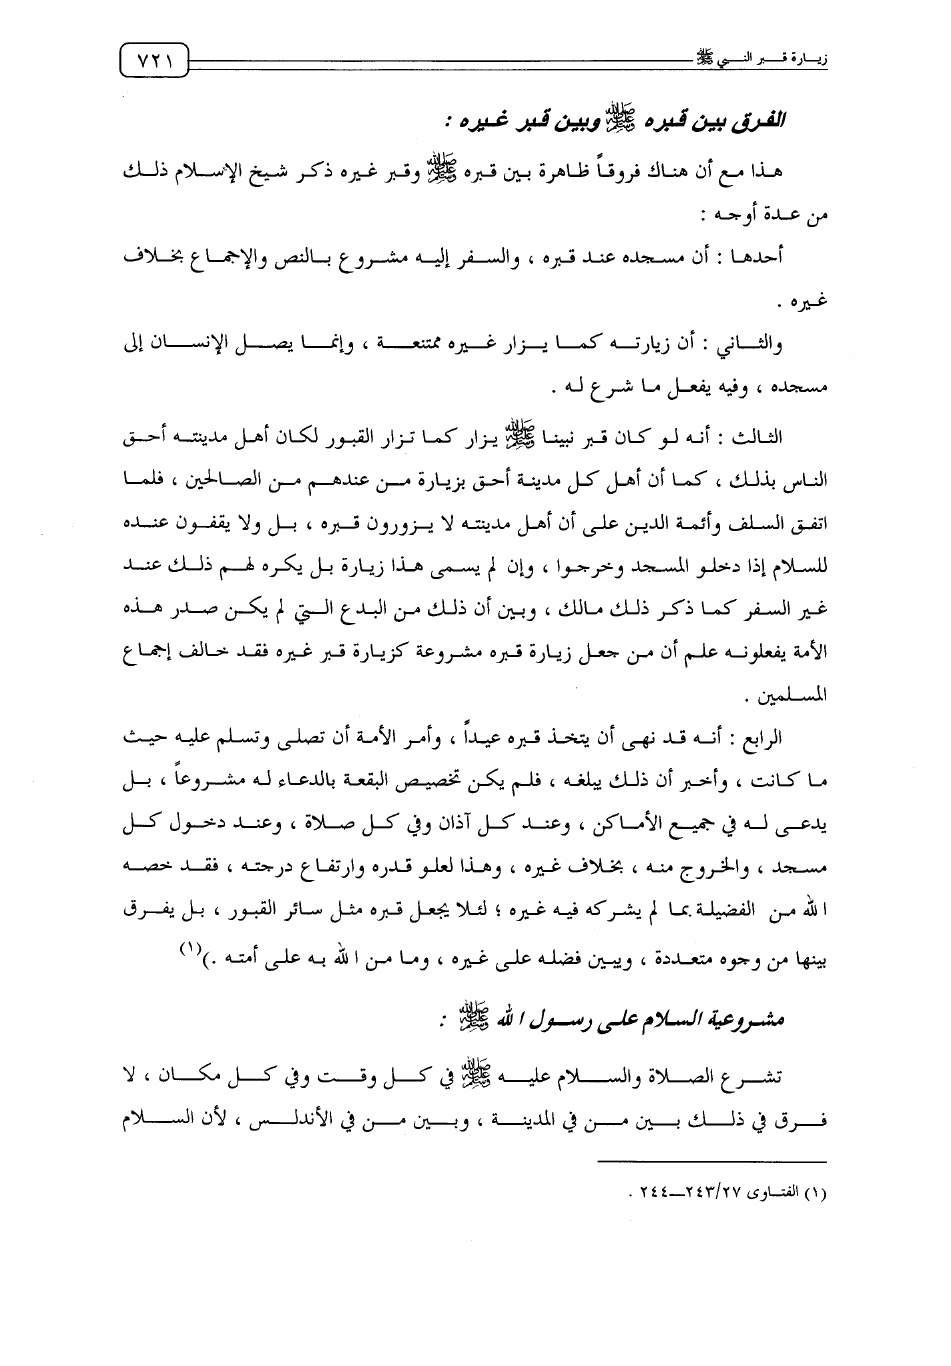 زيارة قبر النبي ﷺ
٧٢١
الفرق بين قبره ﷺ وبين قبر غيره :
هذا مع أن هناك فروقاً ظاهرة بين قبره ﷺ وقبر غيره ذكر شيخ الإسلام ذلك
من عدة أوجه :
أحدها : أن مسجده عند قبره ، والسفر إليه مشروع بالنص والإجماع بخلاف
غيره .
والثاني : أن زيارته كما يزار غيره ممتنعة ، وإنما يصل الإنسان إلى
مسجده ، وفيه يفعل ما شرع له .
الثالث : أنه لو كان قبر نبينا ﷺ يزار كما تزار القبور لكان أهل مدينته أحق
الناس بذلك ، كما أن أهل كل مدينة أحق بزيارة من عندهم من الصالحين ، فلما
اتفق السلف وأئمة الدين على أن أهل مدينته لا يزورون قبره ، بل ولا يقفون عنده
للسلام إذا دخلو المسجد وخرجوا ، وإن لم يسمى هذا زيارة بل يكره لهم ذلك عند
غير السفر كما ذكر ذلك مالك ، وبين أن ذلك من البدع التي لم يكن صدر هذه
الأمة يفعلونه علم أن من جعل زيارة قبره مشروعة كزيارة قبر غيره فقد خالف إجماع
المسلمين .
الرابع : أنه قد نهى أن يتخذ قبره عيداً ، وأمر الأمة أن تصلى وتسلم عليه حيث
ما كانت ، وأخبر أن ذلك يبلغه ، فلم يكن تخصيص البقعة بالدعاء له مشروعاً ، بل
يدعى له في جميع الأماكن ، وعند كل آذان وفي كل صلاة ، وعند دخول كل
مسجد ، والخروج منه ، بخلاف غيره ، وهذا لعلو قدره وارتفاع درجته ، فقد خصه
الله من الفضيلة بما لم يشركه فيه غيره ؛ لئلا يجعل قبره مثل سائر القبور ، بل يفرق
بينها من وجوه متعددة ، ويبين فضله على غيره ، وما من الله به على أمته .)(١)
مشروعية السلام على رسول الله ﷺ :
تشرع الصلاة والسلام عليه ﷺ في كل وقت وفي كل مكان ، لا
فرق في ذلك بين من في المدينة ، وبين من في الأندلس ، لأن السلام
(١) الفتاوى ٢٧/٢٤٣—٢٤٤ .